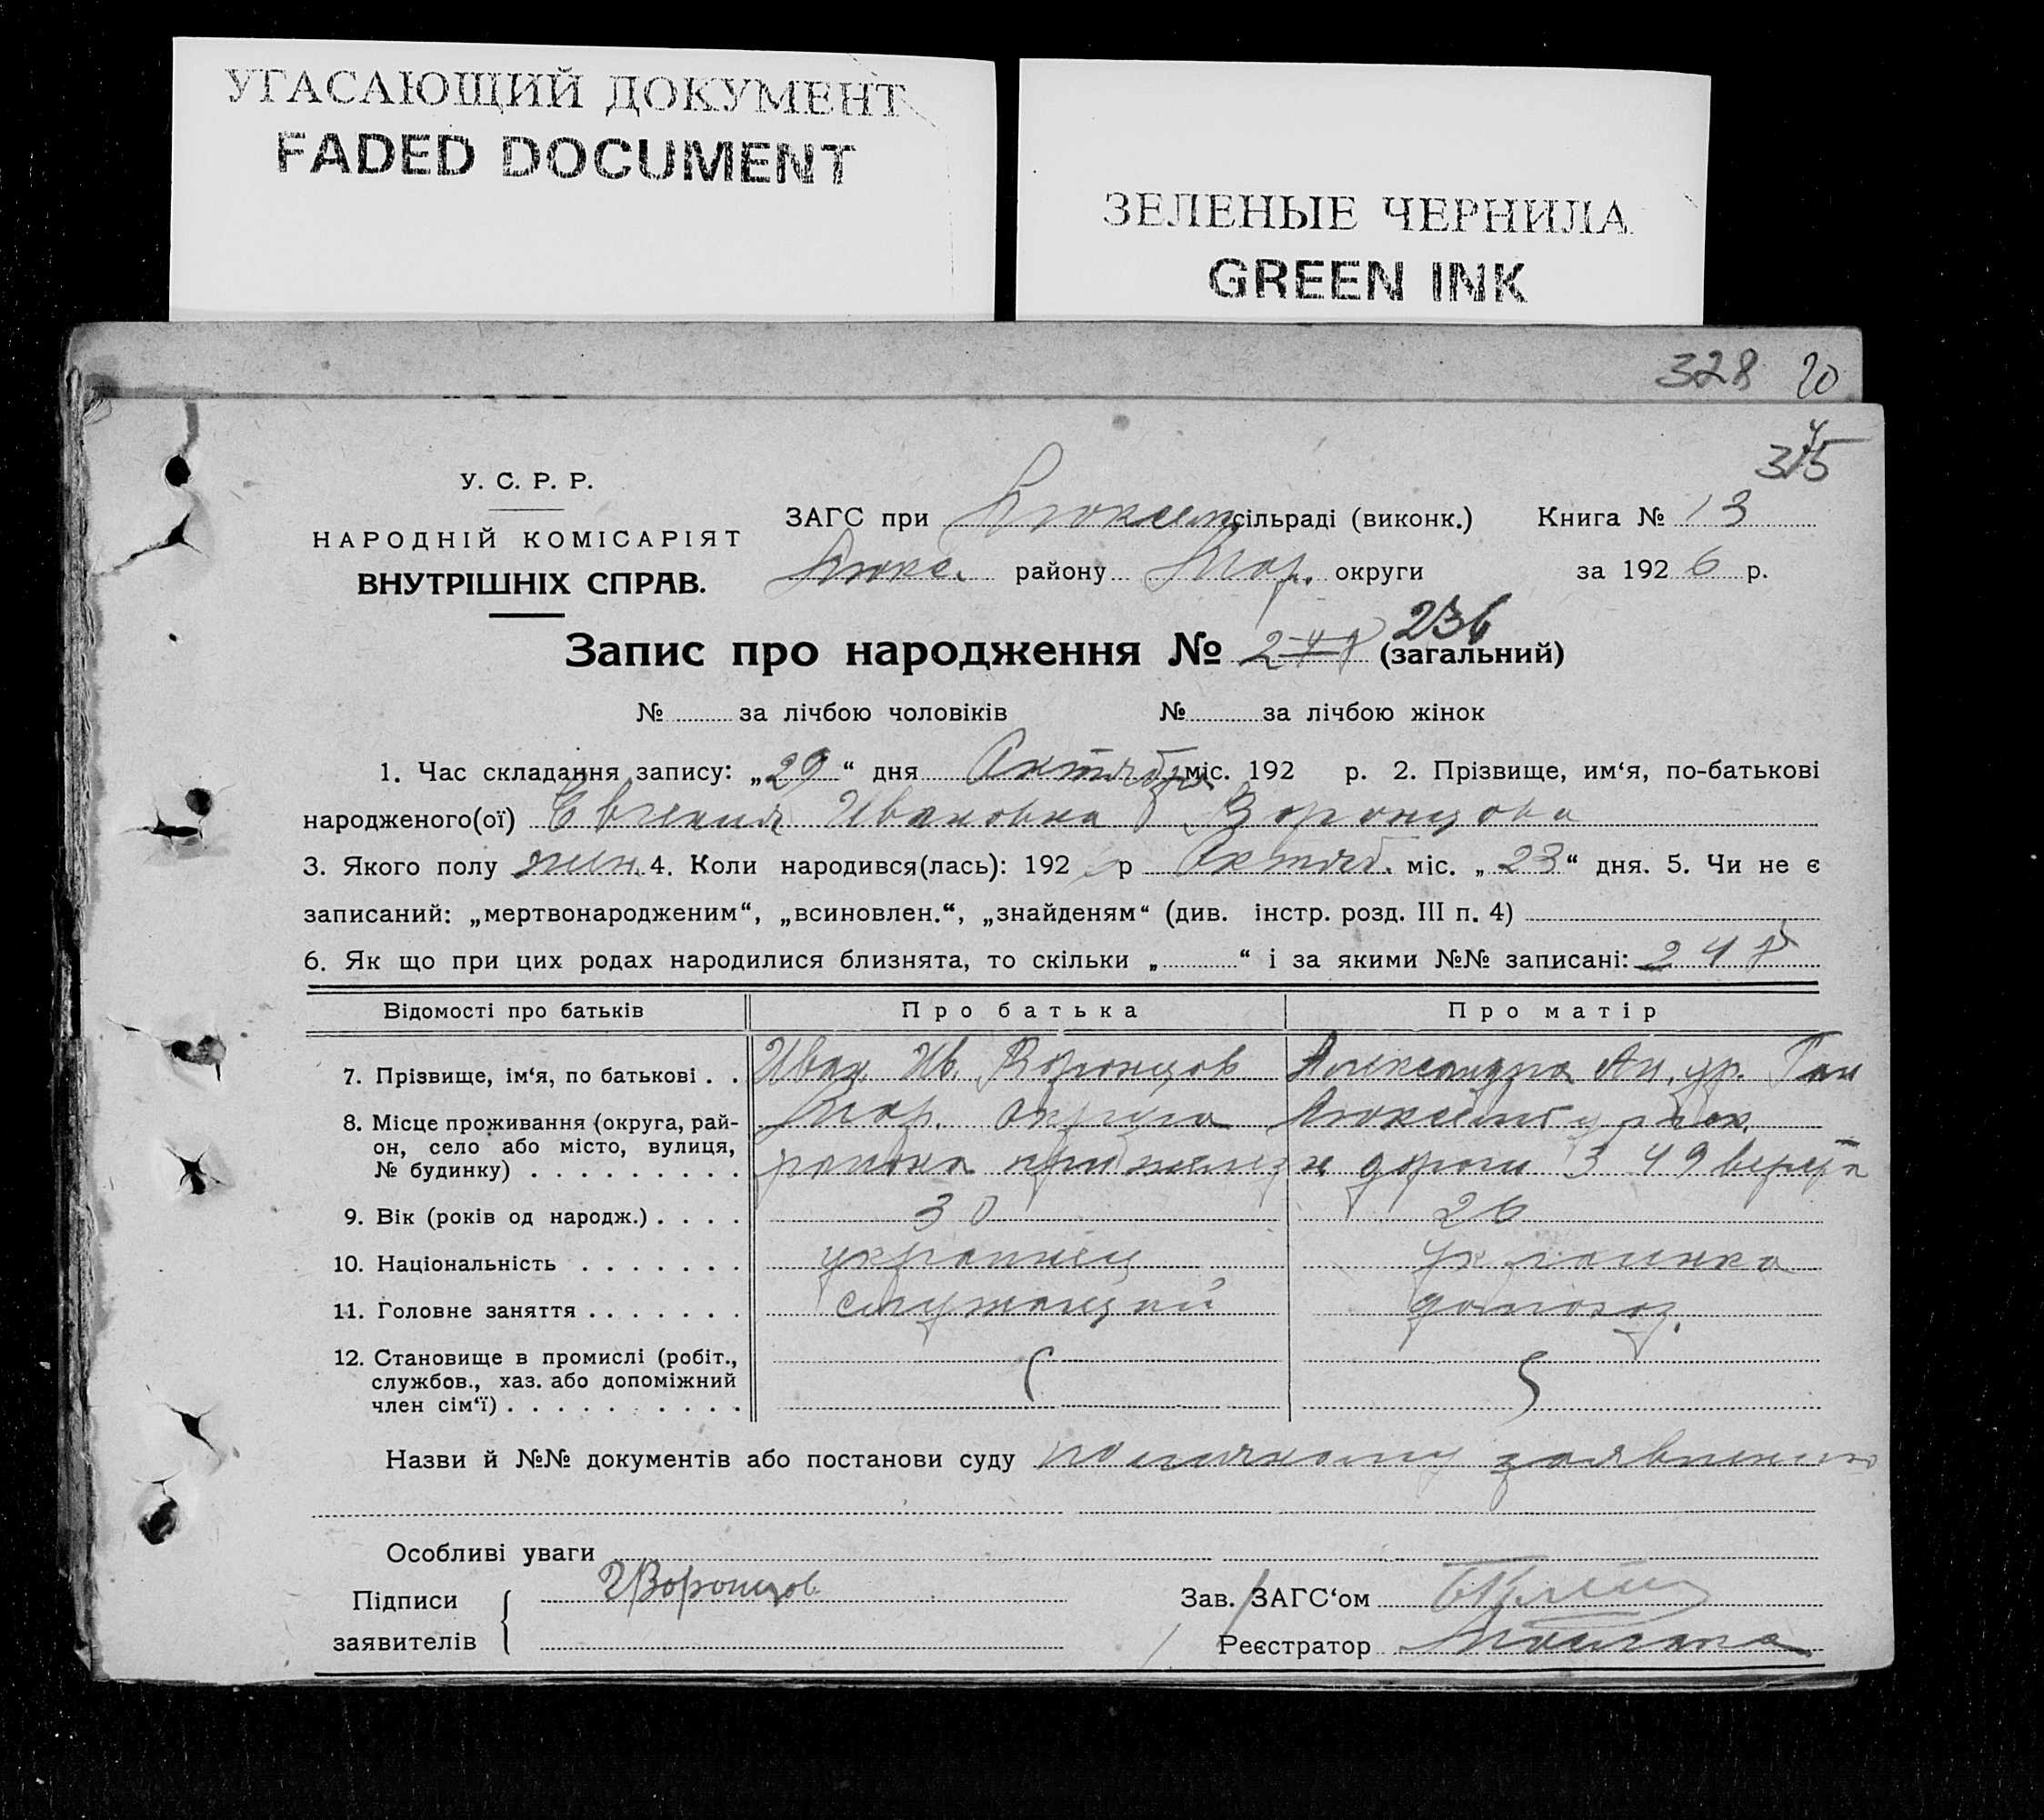 УГАСАЮЩИЙ ДОКУМЕНТ
FADED DOCUMENT
ЗЕЛЕНЫЕ ЧЕРНИЛА
GREEN INK
328 20
У. С. Р. Р.
НАРОДНІЙ КОМІСАРІЯТ
ВНУТРІШНІХ СПРАВ.
ЗАГС при сільраді (виконк.) Книга № 13
району округи за 1926 р.
236
Запис про народження № (загальний)
№ за лічбою чоловіків № за лічбою жінок
1. Час складання запису: „29“ дня Октября міс. 192 р. 2. Прізвище, им‘я, по-батькові
народженого(ої) Евгения Ивановна Воронцова
3. Якого полу жен. 4. Коли народився(лась): 192 р Октяб. міс. „23“ дня. 5. Чи не є
записаний: „мертвонародженим“, „всиновлен.“, „знайденям“ (див. інстр. розд. III п. 4)
6. Як що при цих родах народилися близнята, то скільки „ “ і за якими №№ записані:
Відомості про батьків Про батька Про матір
7. Прізвище, ім‘я, по батькові . . Иван Ив. Воронцов Александра Ан.
8. Місце проживання (округа, рай-
он, село або місто, вулиця,
№ будинку) . . . . . . . . . округа
района при желез н дороги 349 верста
9. Вік (років од народж.) . . . . 30 26
10. Національність . . . . . . . украинец украинка
11. Головне заняття . . . . . . . служащий домохоз.
12. Становище в промислі (робіт.,
службов., хаз. або допоміжний
член сім‘ї) . . . . . . . . . .
Назви й №№ документів або постанови суду по личному заявлению
Особливі уваги
Підписи
заявителів
Воронцов
Зав. ЗАГС‘ом
Реєстратор